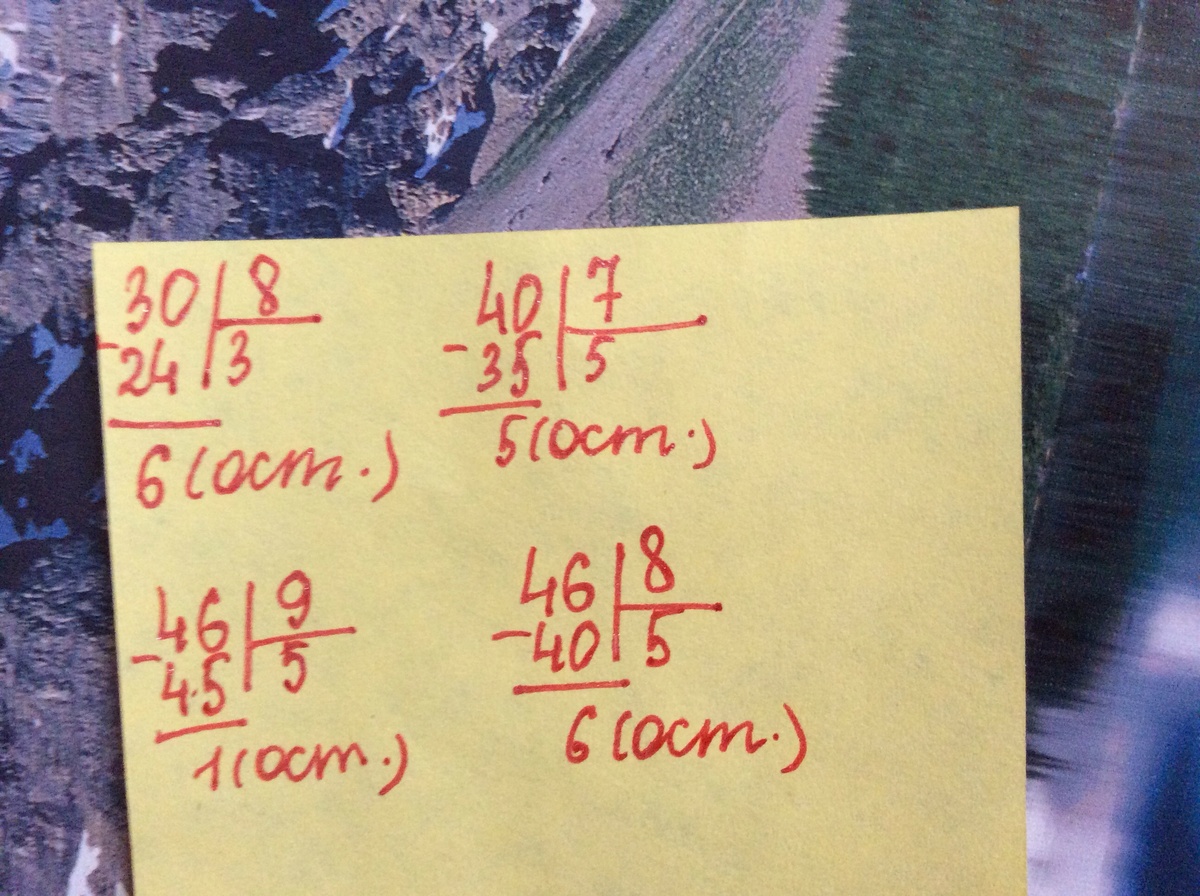 30 8
-24 3
6 (ост.)
40 7
-35 5
5 (ост.)
46 9
-45 5
1 (ост.)
46 8
-40 5
6 (ост.)